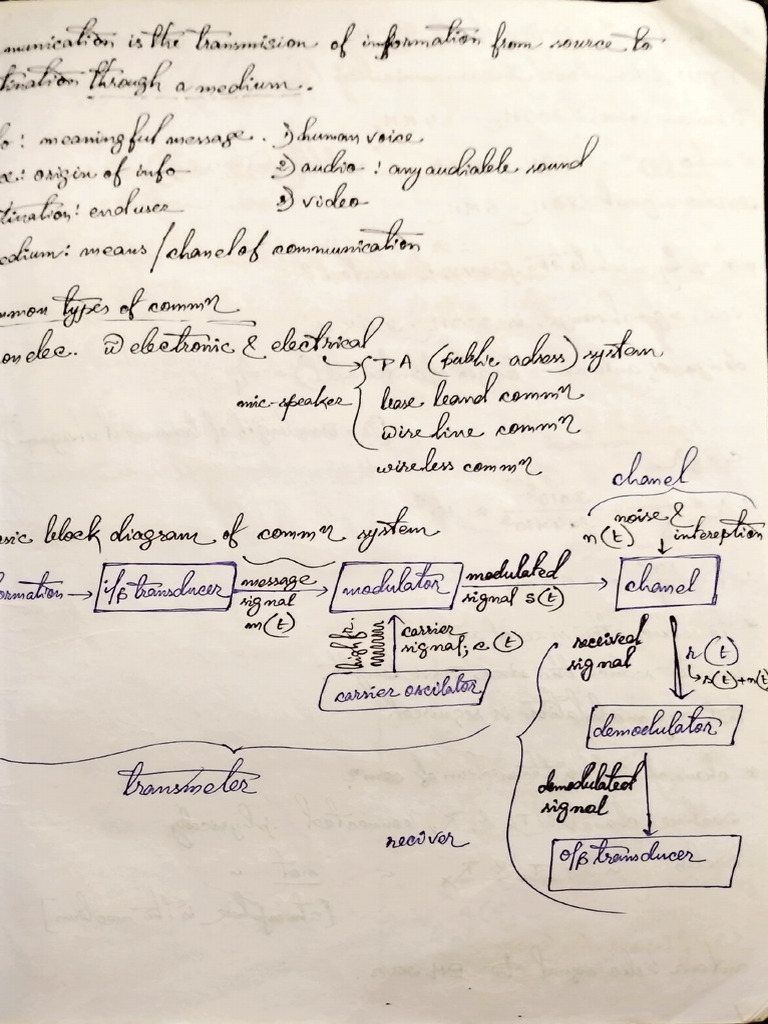 munication is the transmision of information from source to
tination through a medium.
fo: meaningful message. 1) human voice
ce: origin of info 2) audio : any audiable sound
tination: end user 3) video
edium: means / chanel of communication
mmon types of commⁿ
on elec. ii) electronic & electrical
PA (public adress) system
mic-speaker
base band commⁿ
wire line commⁿ
wireless commⁿ
chanel
sic block diagram of commⁿ system
noise &
n(t) intereption
formation → i/p transducer message signal m(t) modulator modulated signal s(t) chanel
high fr. carrier signal; c(t)
carrier oscilator
received signal r(t)
s(t)+n(t)
demodulator
transmeter
demodulated signal
reciver
o/p transducer